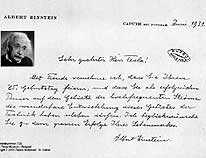 ALBERT EINSTEIN
CAPUTH BEI POTSDAM, Juni 1931
Sehr geehrter Herr Tesla!
Mit Freude vernehme ich, dass Sie Ihren
75. Geburtstag feiern, und dass Sie als erfolgreicher
Pionier auf dem Gebiete der hochfrequenten Ströme
die wunderbare Entwicklung dieses Gebietes der
Technik haben erleben dürfen. Ich beglückwünsche
Sie zu dem grossen Erfolge Ihres Lebenswerkes.
Albert Einstein.